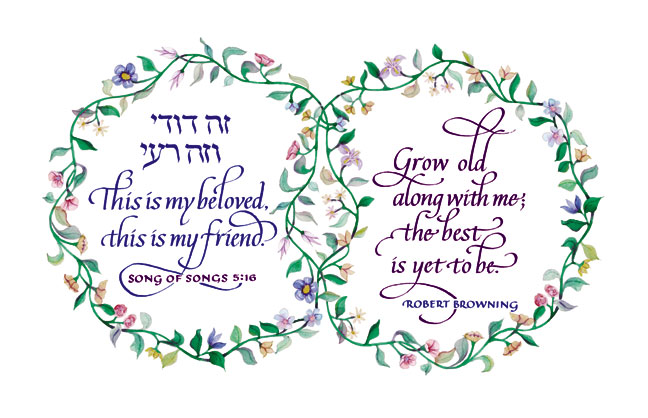 זה דודי
וזה רעי
This is my beloved,
this is my friend.
SONG OF SONGS 5:16
Grow old
along with me;
the best
is yet to be.
ROBERT BROWNING